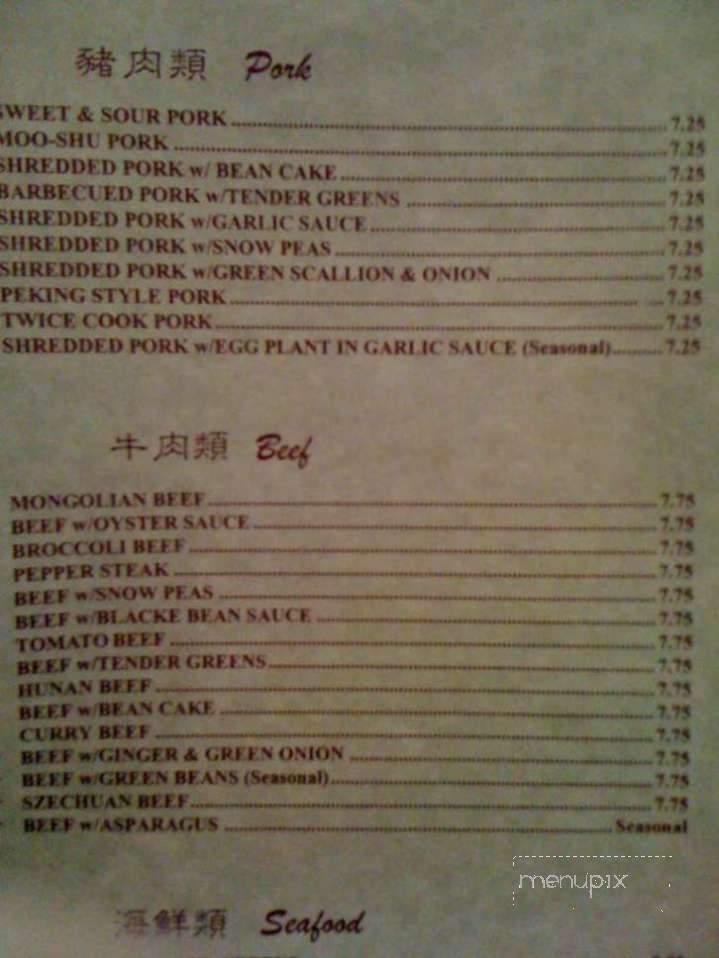 豬肉類 Pork
SWEET & SOUR PORK 7.25
MOO-SHU PORK 7.25
SHREDDED PORK w/ BEAN CAKE 7.25
BARBECUED PORK w/TENDER GREENS 7.25
SHREDDED PORK w/GARLIC SAUCE 7.25
SHREDDED PORK w/SNOW PEAS 7.25
SHREDDED PORK w/GREEN SCALLION & ONION 7.25
PEKING STYLE PORK 7.25
TWICE COOK PORK 7.25
SHREDDED PORK w/EGG PLANT IN GARLIC SAUCE (Seasonal) 7.25
牛肉類 Beef
MONGOLIAN BEEF 7.75
BEEF w/OYSTER SAUCE 7.75
BROCCOLI BEEF 7.75
PEPPER STEAK 7.75
BEEF w/SNOW PEAS 7.75
BEEF w/BLACKE BEAN SAUCE 7.75
TOMATO BEEF 7.75
BEEF w/TENDER GREENS 7.75
HUNAN BEEF 7.75
BEEF w/BEAN CAKE 7.75
CURRY BEEF 7.75
BEEF w/GINGER & GREEN ONION 7.75
BEEF w/GREEN BEANS (Seasonal) 7.75
SZECHUAN BEEF 7.75
BEEF w/ASPARAGUS Seasonal
menupix
海鮮類 Seafood